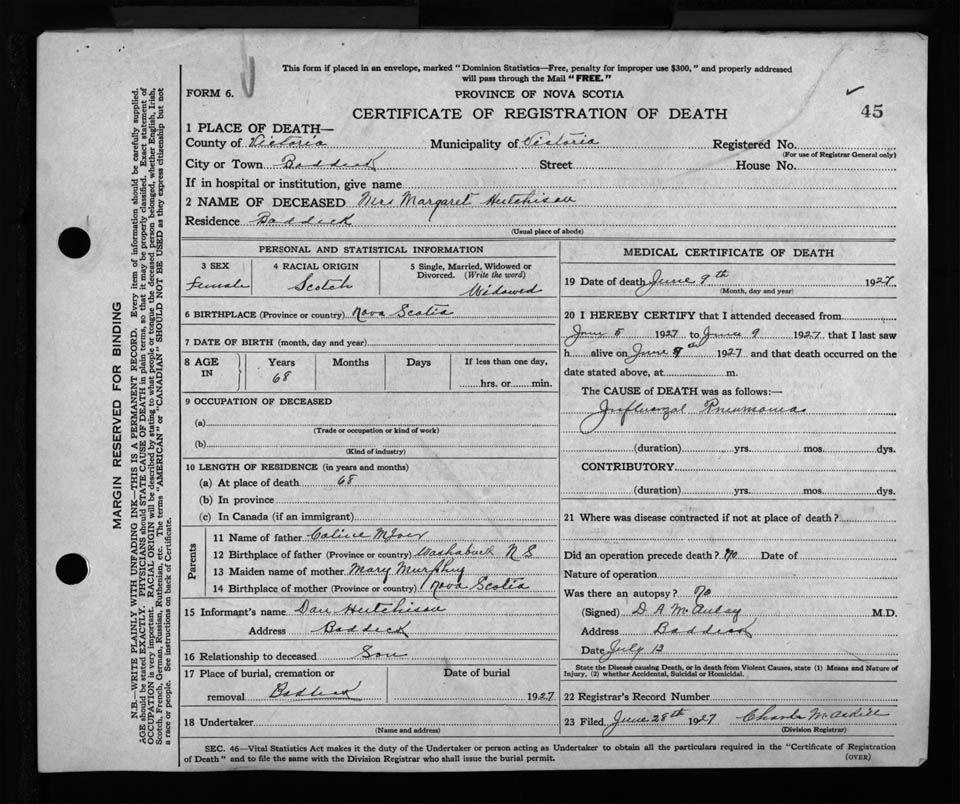 This form if placed in an envelope, marked "Dominion Statistics—Free, penalty for improper use $300," and properly addressed
will pass through the Mail "FREE."
FORM 6.
PROVINCE OF NOVA SCOTIA
CERTIFICATE OF REGISTRATION OF DEATH
45
1 PLACE OF DEATH—
County of Victoria Municipality of Victoria Registered No.
(For use of Registrar General only)
City or Town Baddeck Street House No.
If in hospital or institution, give name
2 NAME OF DECEASED Mrs Margaret Hutchison
Residence Baddeck
(Usual place of abode)
PERSONAL AND STATISTICAL INFORMATION
3 SEX
Female
4 RACIAL ORIGIN
Scotch
5 Single, Married, Widowed or
Divorced. (Write the word)
Widowed
6 BIRTHPLACE (Province or country) Nova Scotia
7 DATE OF BIRTH (month, day and year)
8 AGE
IN
Years
68
Months
Days
If less than one day,
hrs. or min.
9 OCCUPATION OF DECEASED
(a)
(Trade or occupation or kind of work)
(b)
(Kind of industry)
10 LENGTH OF RESIDENCE (in years and months)
(a) At place of death 68
(b) In province
(c) In Canada (if an immigrant)
Parents
11 Name of father
12 Birthplace of father (Province or country) N S
13 Maiden name of mother Mary Murphy
14 Birthplace of mother (Province or country) Nova Scotia
15 Informant's name Dan Hutchison
Address Baddeck
16 Relationship to deceased Son
17 Place of burial, cremation or
removal Baddeck
Date of burial
1927
18 Undertaker
(Name and address)
MEDICAL CERTIFICATE OF DEATH
19 Date of death June 9th 1927
(Month, day and year)
20 I HEREBY CERTIFY that I attended deceased from
June 5 1927 to June 9 1927 that I last saw
h alive on June 9th 1927 and that death occurred on the
date stated above, at m.
The CAUSE of DEATH was as follows:—
Influenzal Pneumonia
(duration) yrs. mos. dys.
CONTRIBUTORY
(duration) yrs. mos. dys.
21 Where was disease contracted if not at place of death?
Did an operation precede death? No Date of
Nature of operation
Was there an autopsy? No
(Signed) D. A. M. D.
Address Baddeck
Date July 12
State the Disease causing Death, or in death from Violent Causes, state (1) Means and Nature of
Injury, (2) whether Accidental, Suicidal or Homicidal.
22 Registrar's Record Number
23 Filed June 28th 1927 Charles
(Division Registrar)
SEC. 46—Vital Statistics Act makes it the duty of the Undertaker or person acting as Undertaker to obtain all the particulars required in the "Certificate of Registration
of Death" and to file the same with the Division Registrar who shall issue the burial permit.
(OVER)
MARGIN RESERVED FOR BINDING
N.B.—WRITE PLAINLY WITH UNFADING INK—THIS IS A PERMANENT RECORD. Every item of information should be carefully supplied.
AGE should be stated EXACTLY. PHYSICIANS should STATE CAUSE OF DEATH in plain terms, so that it may be properly classified. Exact statement of
OCCUPATION is very important. RACIAL ORIGIN will be described by stating to what people or tongue the deceased person belonged, whether English, Irish,
Scotch, French, German, Russian, Ruthenian, etc. The terms "AMERICAN" or "CANADIAN" SHOULD NOT BE USED as they express citizenship but not
a race or people. See instructions on back of Certificate.